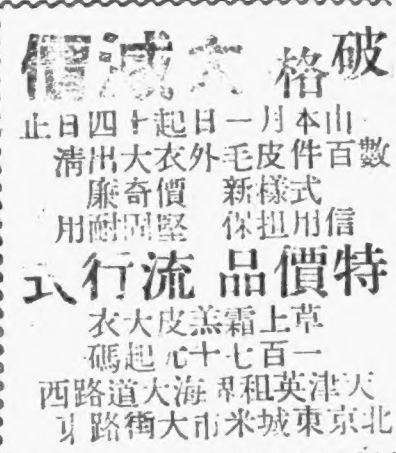 破格 大減價
由本月一日起十四日止
數百件皮毛外衣大出清
式樣新 價奇廉
信用担保 堅固耐用
特價品 流行式
草上霜羔皮大衣
一百七十元起碼
天津英租界海大道路西
北京東城米市大街路